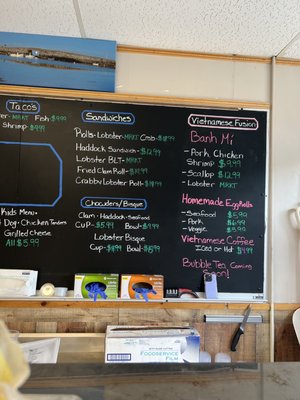 Tacos
MRKT Fish-$9.99
Shrimp $9.99
Kids Menu
Dog-Chicken Tenders
Grilled Cheese
All $5.99
Sandwiches
Rolls-Lobster-MRKT Crab-
Haddock Sandwich-$12.99
Lobster BLT-MRKT
Fried Clam Roll-
Crabby Lobster Roll-
Chouders/Bisque
Clam-Haddock-Seafood
Cup-$5.99 Bowl-$9.99
Lobster Bisque
Cup- Bowl-
Vietnamese Fusion
Banh Mi
-Pork Chicken
Shrimp $9.99
-Scallop $12.99
-Lobster MRKT
Homemade EggRolls
-Seafood $5.99
-Pork $6.99
-Veggie $5.99
Vietnamese Coffee
Iced or Hot $4.99
Bubble Tea Coming
Soon!
FOODSERVICE
FILM